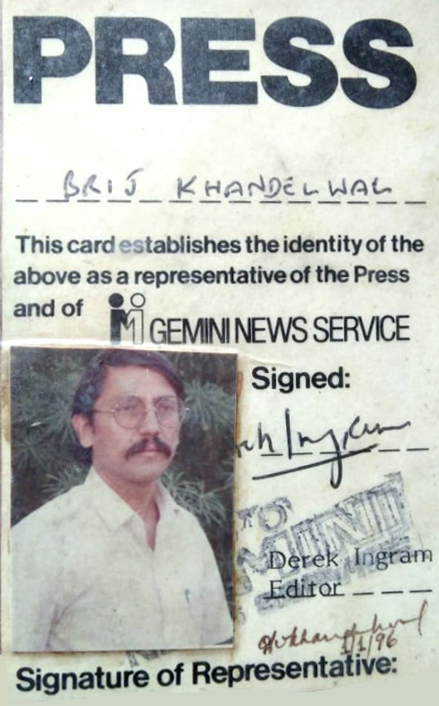 PRESS
BRIJ KHANDELWAL
This card establishes the identity of the
above as a representative of the Press
and of GEMINI NEWS SERVICE
Signed:
Derek Ingram
Editor
1/1/96
Signature of Representative: